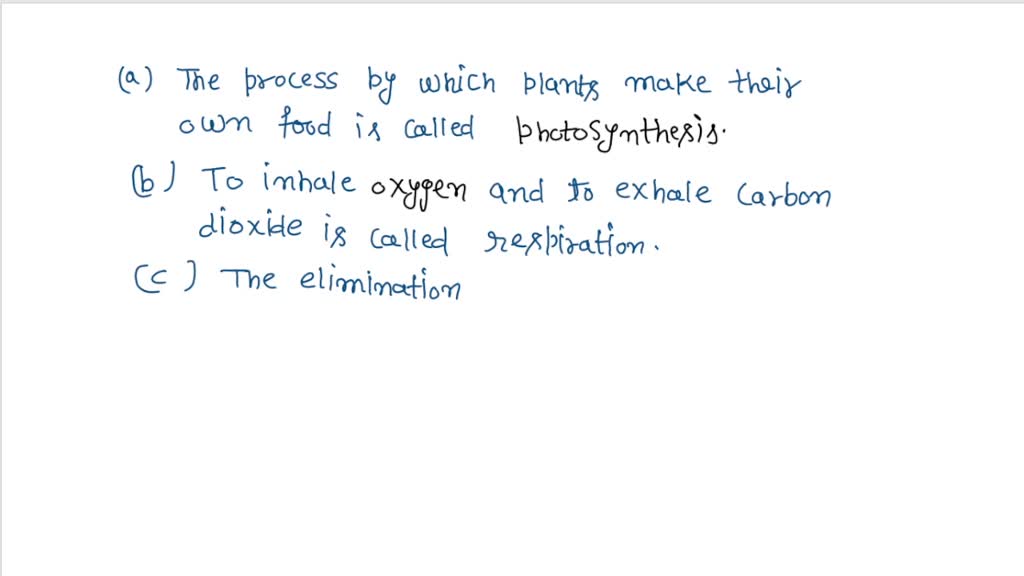 (a) The process by which plants make their
own food is called photosynthesis.
(b) To inhale oxygen and to exhale carbon
dioxide is called respiration.
(c) The elimination